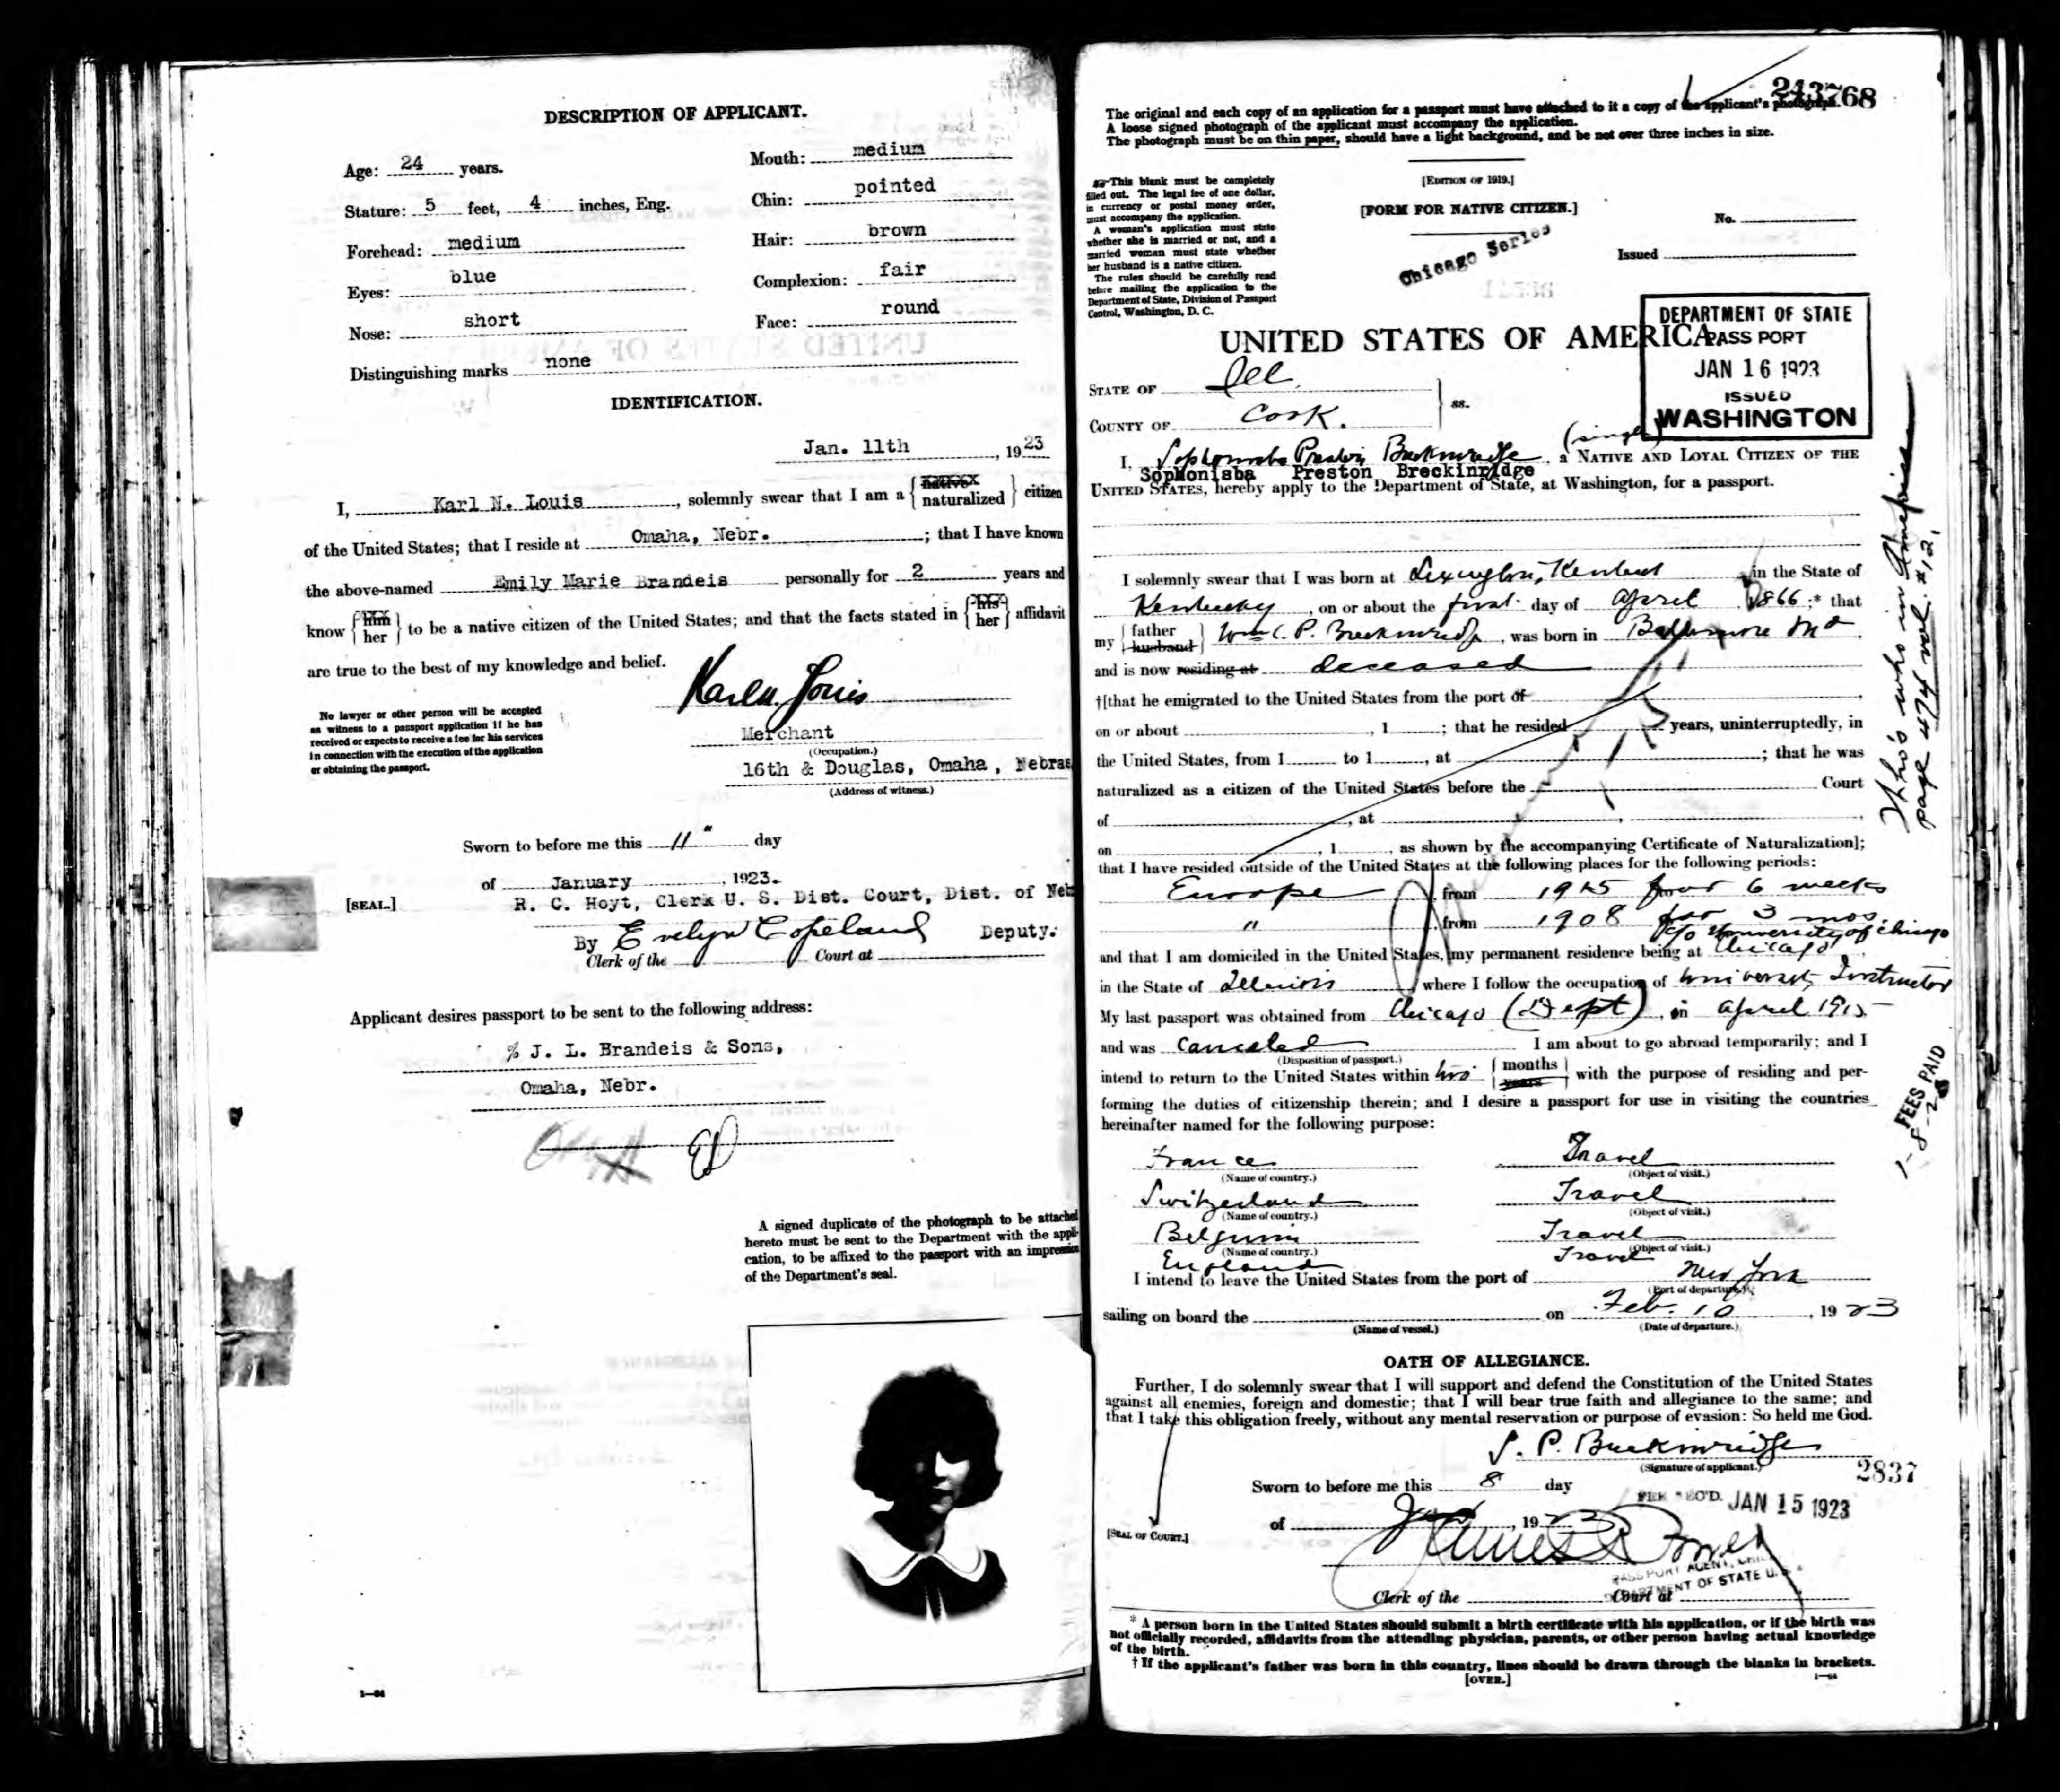 DESCRIPTION OF APPLICANT.
Age: 24 years.
Mouth: medium
Stature: 5 feet, 4 inches, Eng.
Chin: pointed
Forehead: medium
Hair: brown
Eyes: blue
Complexion: fair
Nose: short
Face: round
Distinguishing marks none
IDENTIFICATION.
Jan. 11th, 1923
I, Karl N. Louis, solemnly swear that I am a { native naturalized } citizen
of the United States; that I reside at Omaha, Nebr. ; that I have known
the above-named Emily Marie Brandeis personally for 2 years and
know { him her } to be a native citizen of the United States; and that the facts stated in { his her } affidavit
are true to the best of my knowledge and belief.
Karl N. Louis
No lawyer or other person will be accepted
as witness to a passport application if he has
received or expects to receive a fee for his services
in connection with the execution of the application
or obtaining the passport.
Merchant
(Occupation.)
16th & Douglas, Omaha, Nebras
(Address of witness.)
Sworn to before me this 11" day
of January, 1923.
[SEAL.]
R. C. Hoyt, Clerk U. S. Dist. Court, Dist. of Neb
By Evelyn Copeland Deputy.
Clerk of the Court at
Applicant desires passport to be sent to the following address:
% J. L. Brandeis & Sons,
Omaha, Nebr.
A signed duplicate of the photograph to be attached
hereto must be sent to the Department with the appli-
cation, to be affixed to the passport with an impression
of the Department's seal.
1—64
243768
The original and each copy of an application for a passport must have attached to it a copy of the applicant's photograph.
A loose signed photograph of the applicant must accompany the application.
The photograph must be on thin paper, should have a light background, and be not over three inches in size.
This blank must be completely
filled out. The legal fee of one dollar,
in currency or postal money order,
must accompany the application.
A woman's application must state
whether she is married or not, and a
married woman must state whether
her husband is a native citizen.
The rules should be carefully read
before mailing the application to the
Department of State, Division of Passport
Control, Washington, D. C.
[EDITION OF 1919.]
[FORM FOR NATIVE CITIZEN.]
Chicago Series
No.
Issued
UNITED STATES OF AMERICA
DEPARTMENT OF STATE
PASSPORT
JAN 16 1923
ISSUED
WASHINGTON
STATE OF Ill.
COUNTY OF Cook. ss.
(single)
I, Sophonisba Preston Breckinridge, a NATIVE AND LOYAL CITIZEN OF THE
Sophonisba Preston Breckinridge
UNITED STATES, hereby apply to the Department of State, at Washington, for a passport.
I solemnly swear that I was born at Lexington, Kentucky in the State of
Kentucky, on or about the first day of April 1866;* that
my { father husband } Wm C. P. Breckinridge, was born in Baltimore Md
and is now residing at deceased
†[that he emigrated to the United States from the port of
on or about , 1 ; that he resided years, uninterruptedly, in
the United States, from 1 to 1 , at ; that he was
naturalized as a citizen of the United States before the Court
of , at ,
on , 1 , as shown by the accompanying Certificate of Naturalization];
that I have resided outside of the United States at the following places for the following periods:
Europe from 1915 for 6 weeks
" from 1908 for 3 mos.
c/o University of Chicago
and that I am domiciled in the United States, my permanent residence being at Chicago
in the State of Illinois where I follow the occupation of University Instructor
My last passport was obtained from Chicago (Dept), in April 1915
and was canceled I am about to go abroad temporarily; and I
(Disposition of passport.)
intend to return to the United States within two { months years } with the purpose of residing and per-
forming the duties of citizenship therein; and I desire a passport for use in visiting the countries
hereinafter named for the following purpose:
France Travel
(Name of country.) (Object of visit.)
Switzerland Travel
(Name of country.) (Object of visit.)
Belgium Travel
(Name of country.) (Object of visit.)
England Travel
I intend to leave the United States from the port of New York
(Port of departure.)
sailing on board the on Feb. 10, 1923
(Name of vessel.) (Date of departure.)
OATH OF ALLEGIANCE.
Further, I do solemnly swear that I will support and defend the Constitution of the United States
against all enemies, foreign and domestic; that I will bear true faith and allegiance to the same; and
that I take this obligation freely, without any mental reservation or purpose of evasion: So held me God.
S. P. Breckinridge
(Signature of applicant.)
2837
Sworn to before me this 8 day
FEE REC'D. JAN 15 1923
of Jan, 1923
[SEAL OF COURT.]
PASSPORT AGENT,
DEPARTMENT OF STATE U.S.
Clerk of the Court at
* A person born in the United States should submit a birth certificate with his application, or if the birth was
not officially recorded, affidavits from the attending physician, parents, or other person having actual knowledge
of the birth.
† If the applicant's father was born in this country, lines should be drawn through the blanks in brackets.
[OVER.]
1—64
Who's who in America
page 474 vol. #12.
FEES PAID
1-8-2